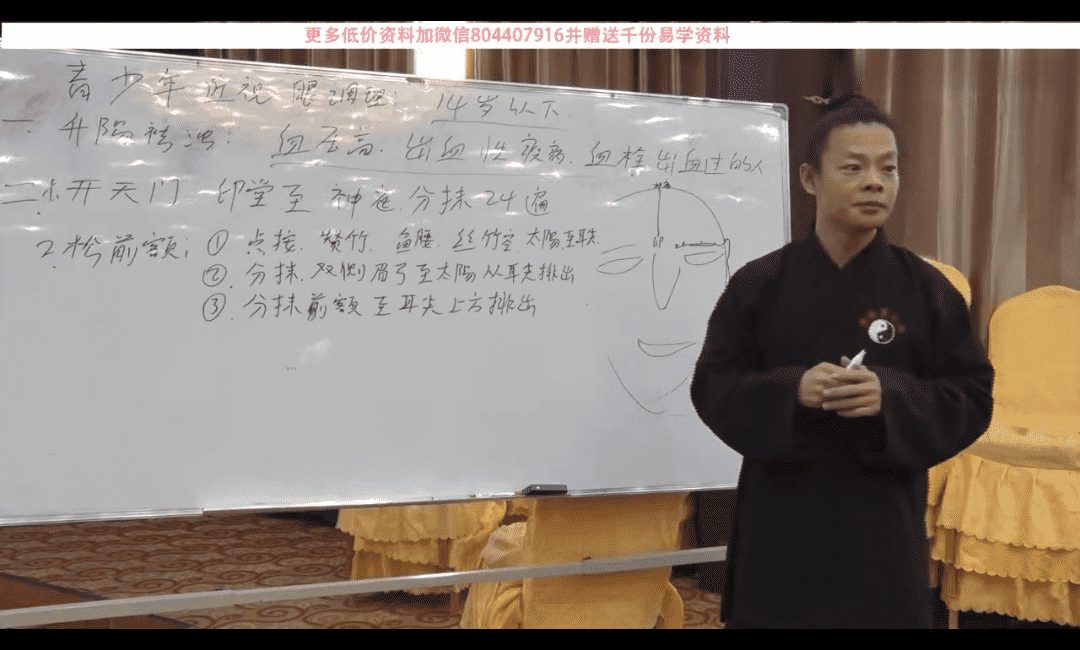 更多低价资料加微信804407916并赠送千份易学资料
青少年近视眼调理: 14岁以下
一. 升阳祛浊: 血压高. 出血性疾病. 血栓出血过的人
二. 1. 开天门 印堂至神庭.分抹24遍
2. 松前额: ① 点按. 攒竹. 鱼腰. 丝竹空 太阳至耳尖
②. 分抹. 双侧眉弓至太阳从耳尖排出
③. 分抹前额至耳尖上方排出